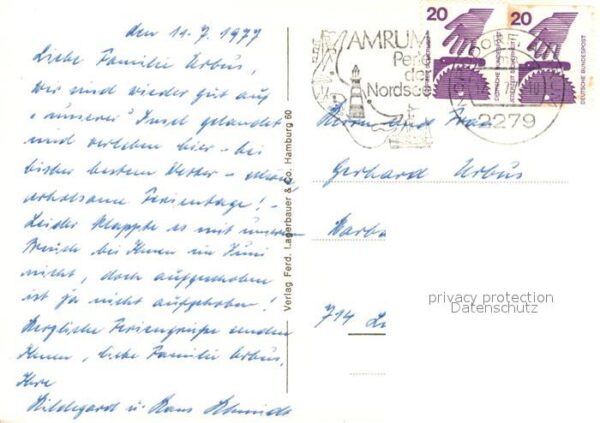 den 11.7.1977
Liebe Familie Erbus,
wir sind wieder gut auf
"unserer" Insel gelandet
und verleben hier - bei
bisher bestem Wetter -
erholsame Ferientage! -
Leider klappte es mit unserem
Besuch bei Ihnen im Juni
nicht, doch aufgeschoben
ist ja nicht aufgehoben!
Herzliche Feriengrüße senden
Ihnen, liebe Familie Erbus,
Ihre
Hildegard u. Hans Schmidt
Verlag Ferd. Lagerbauer & Co. Hamburg 60
AMRUM
Perle
der
Nordsee
20
DEUTSCHE BUNDESPOST
20
DEUTSCHE BUNDESPOST
2279
Herrn und Frau
Gerhard Erbus
714
privacy protection
Datenschutz